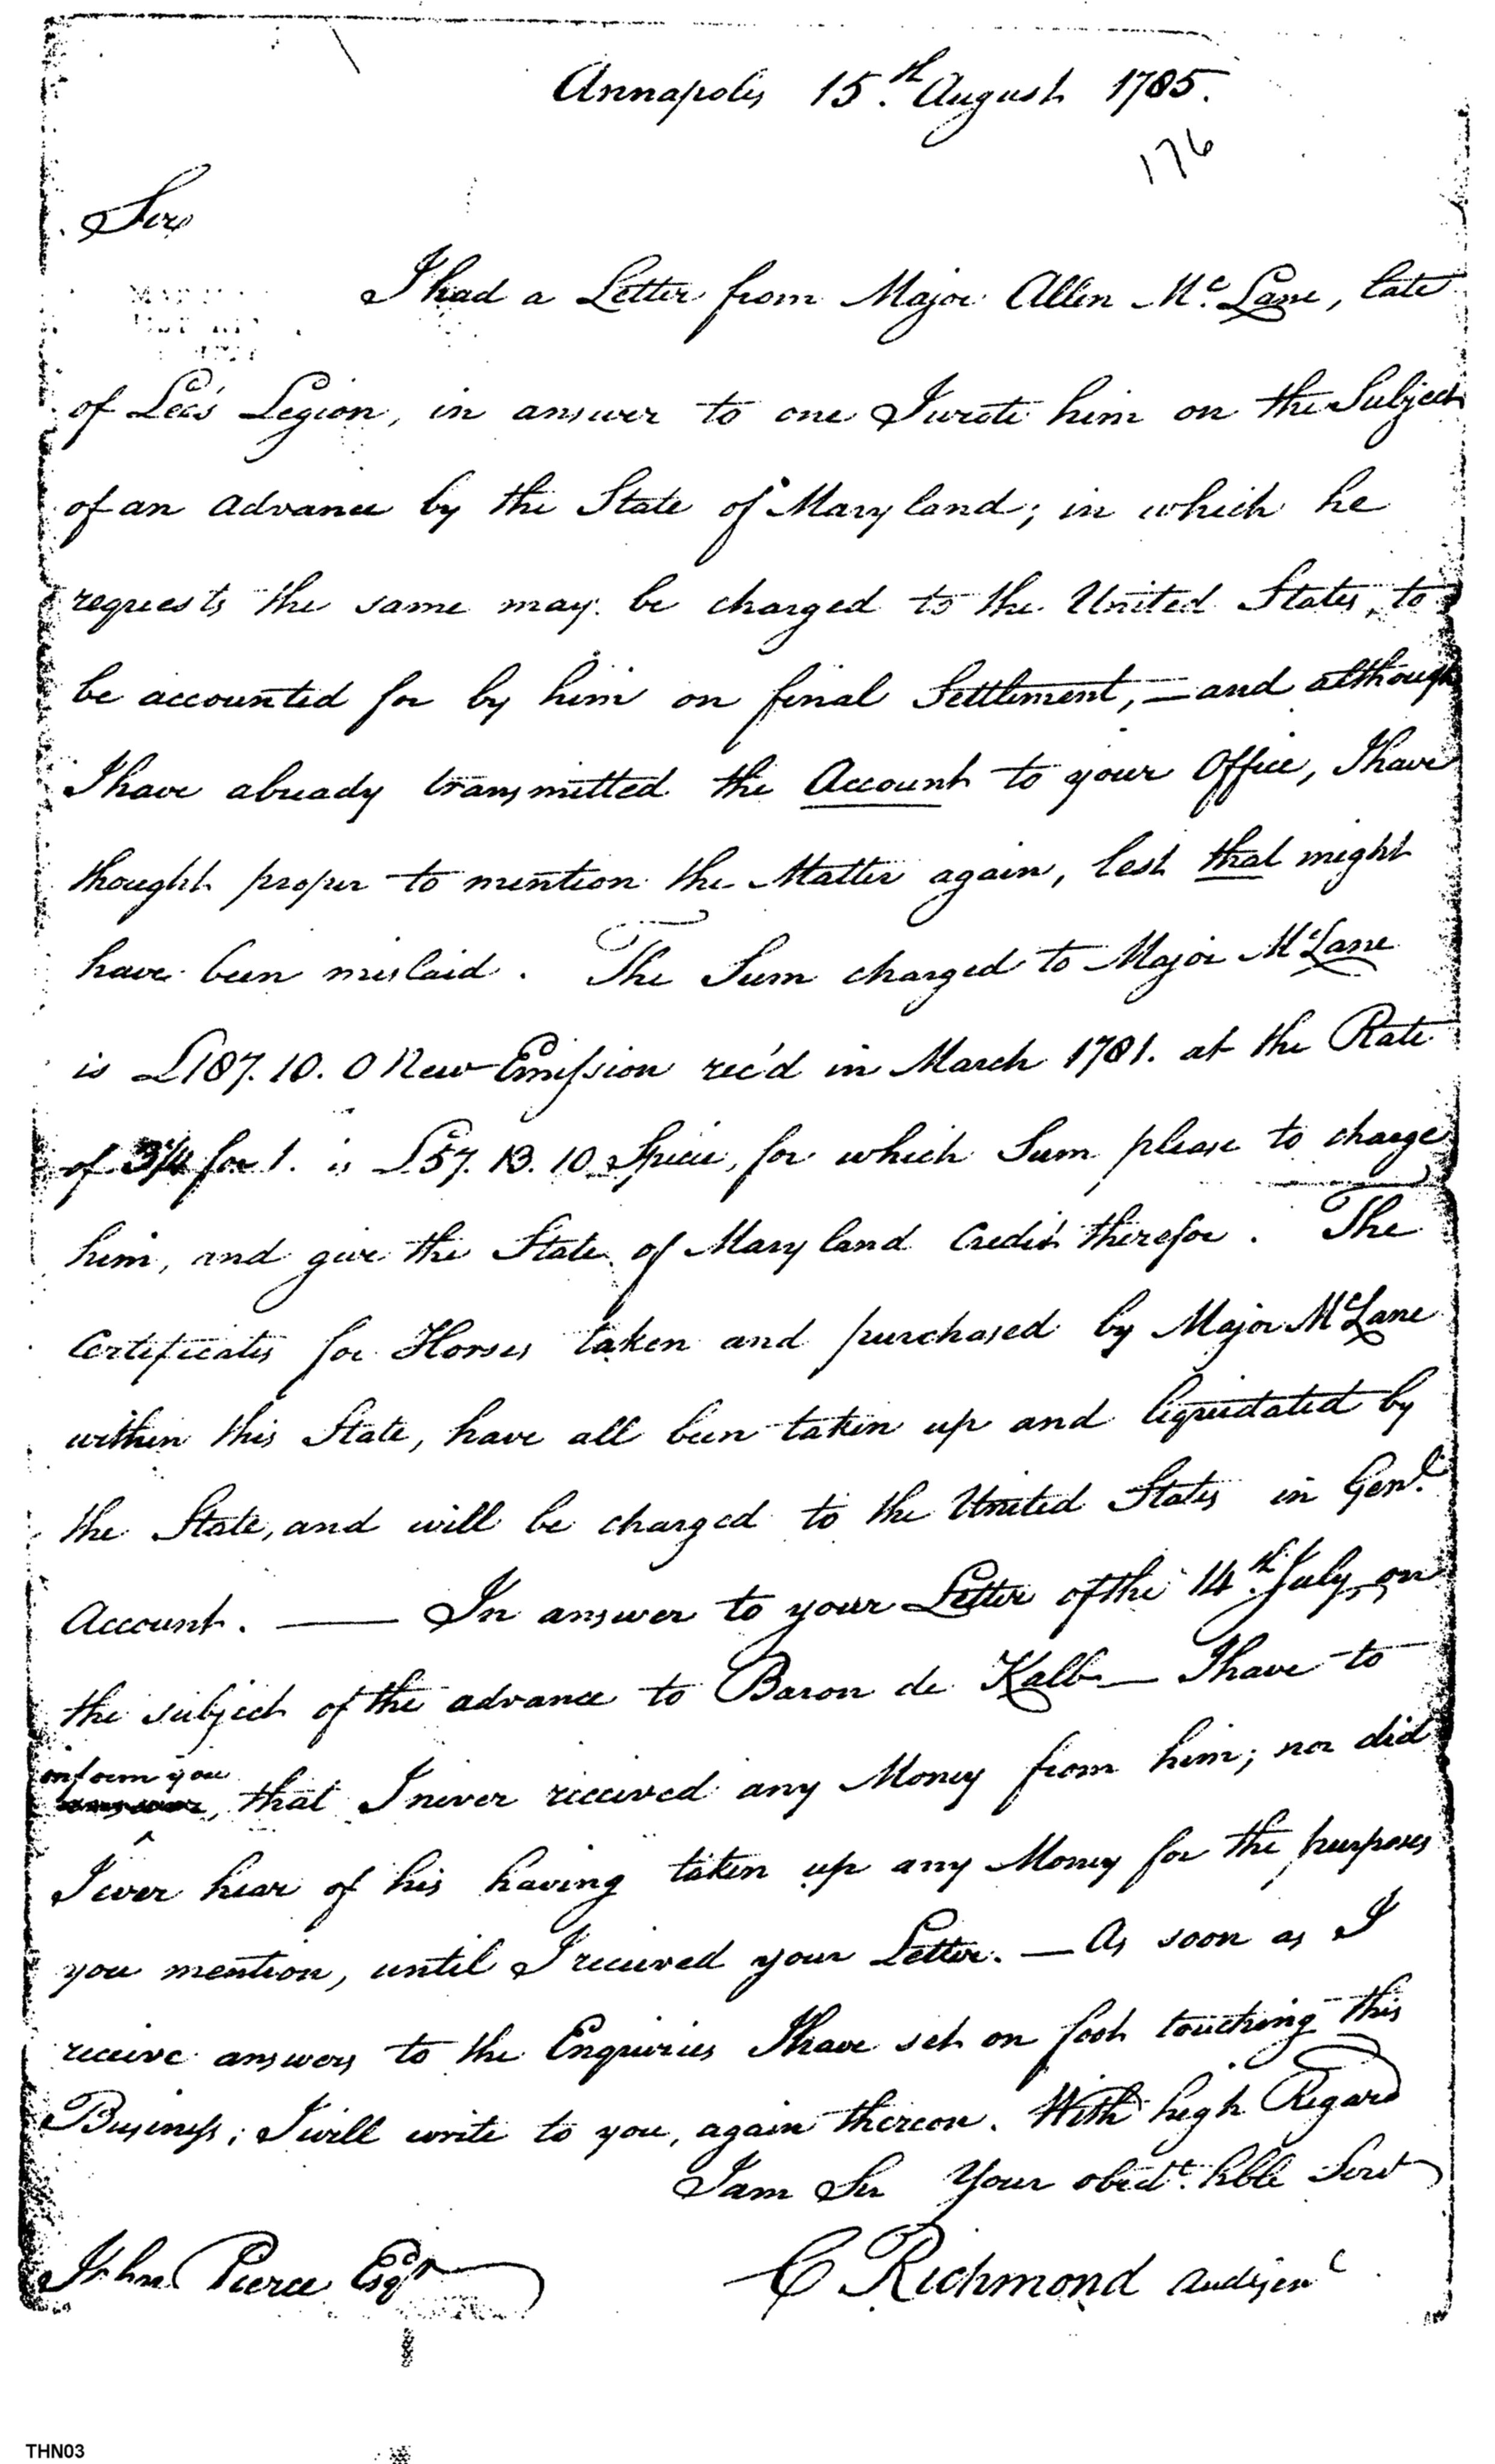 Annapolis 15.th August 1785.
176
Sir
I had a Letter from Major Allen Mc. Lane, late
of Lee's Legion, in answer to one I wrote him on the Subject
of an advance by the State of Maryland; in which he
requests the same may be charged to the United States, to
be accounted for by him on final Settlement, — and although
I have already transmitted the Account to your Office, I have
thought proper to mention the Matter again, lest that might
have been mislaid. The Sum charged to Major McLane
is £187. 10. 0 New Emission rec'd in March 1781. at the Rate
of 3¼ for 1. is £57. 13. 10 Specie, for which Sum please to charge
him, and give the State of Maryland Credit therefor. The
Certificates for Horses taken and purchased by Major McLane
within this State, have all been taken up and liquidated by
the State, and will be charged to the United States in Genl.
Account. — In answer to your Letter of the 14th. July, on
the subject of the advance to Baron de Kalb — I have to
inform you
, that I never received any Money from him; nor did
I ever hear of his having taken up any Money for the purposes
you mention, until I received your Letter. — As soon as I
receive answers to the Enquiries I have set on foot touching this
Business, I will write to you, again thereon. With high Regard
I am Sir Your obedt. hble Servt
John Pierce Esqr
C Richmond Aud Genl
THN03